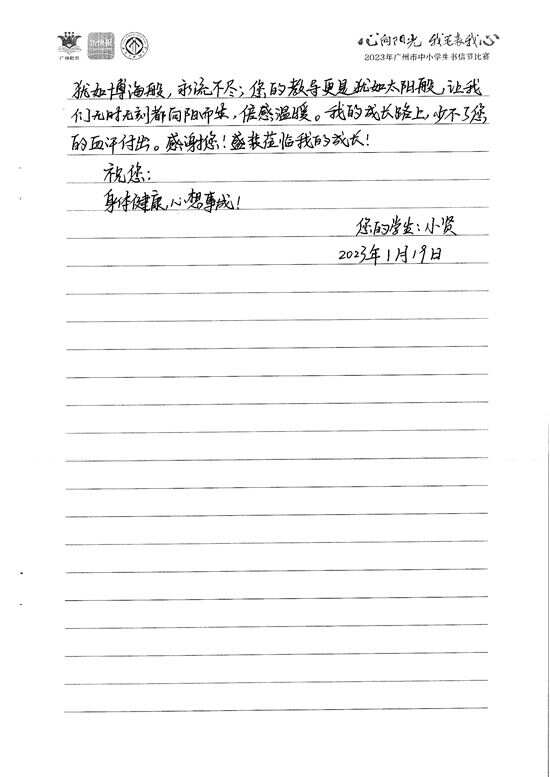 心向阳光 我笔表我心
2023年广州市中小学生书信节比赛
犹如博海般，永流不尽；您的教导更是犹如太阳般，让我
们无时无刻都向阳而生，倍感温暖。我的成长路上，少不了您
的血汗付出。感谢您！盛装莅临我的成长！
祝您：
身体健康，心想事成！
您的学生：小贤
2023年1月19日